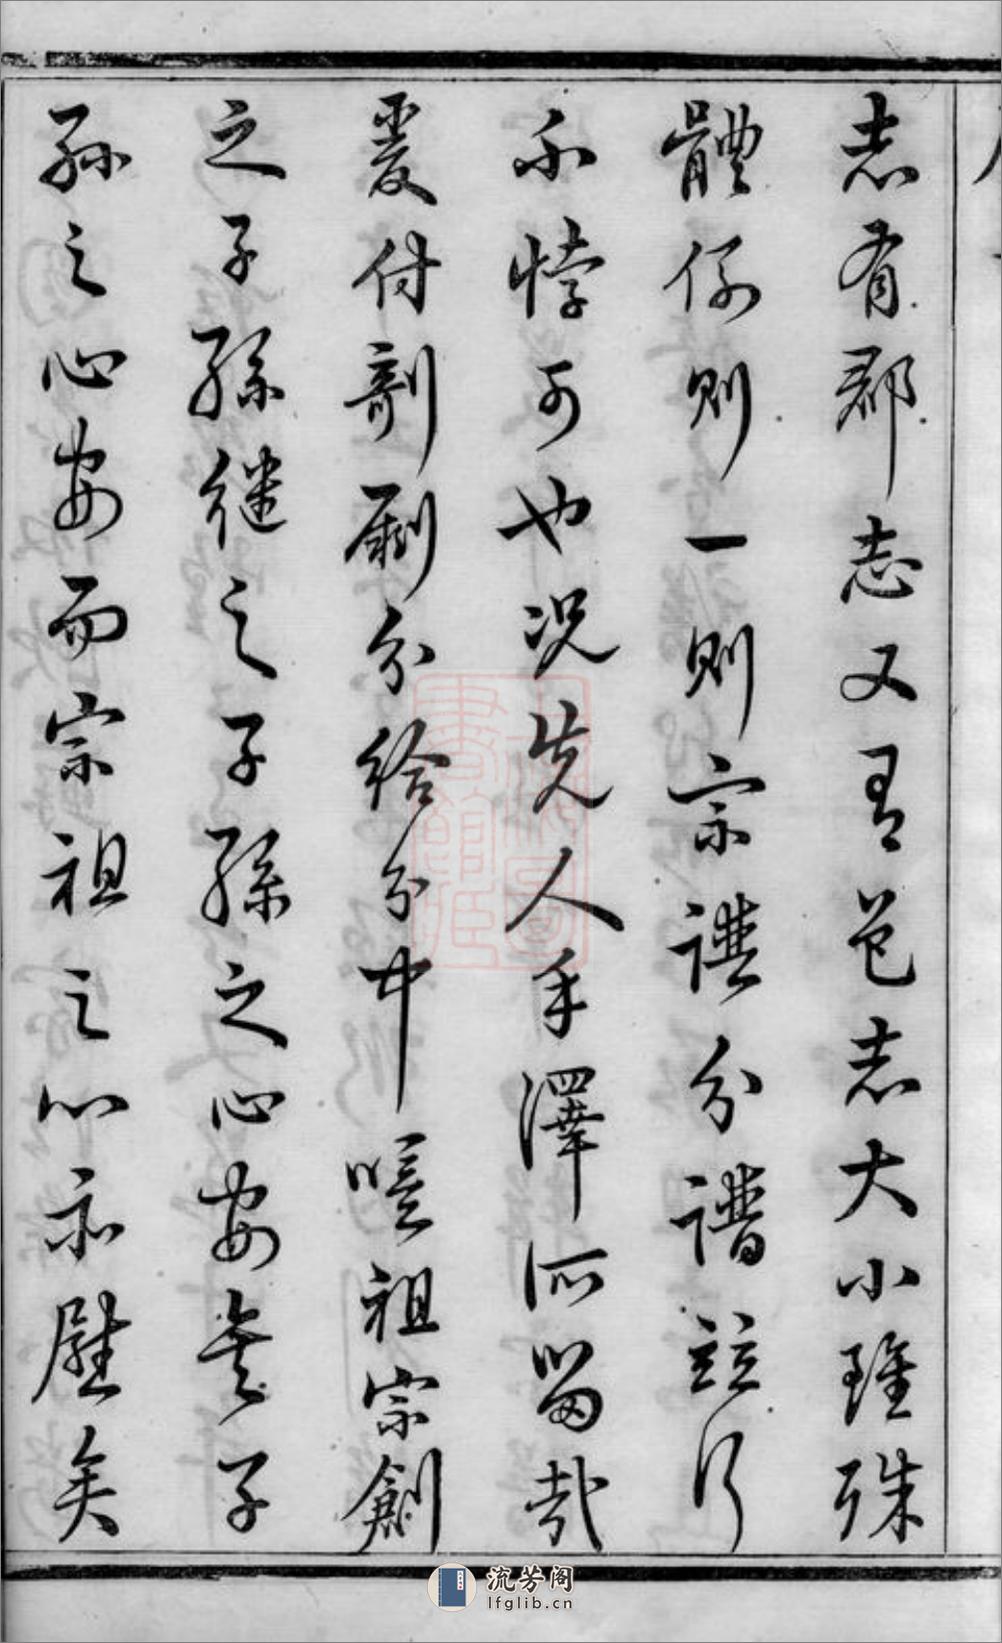 志有郡志又有邑志大小雖殊
體例則一則宗譜分譜竝行
不悖可也況先人手澤所留哉
爰付剞劂分給分中嗟祖宗創
之子孫繼之子孫之心安矣子
孫之心安而宗祖之心亦慰矣
流芳阁
lfglib.cn